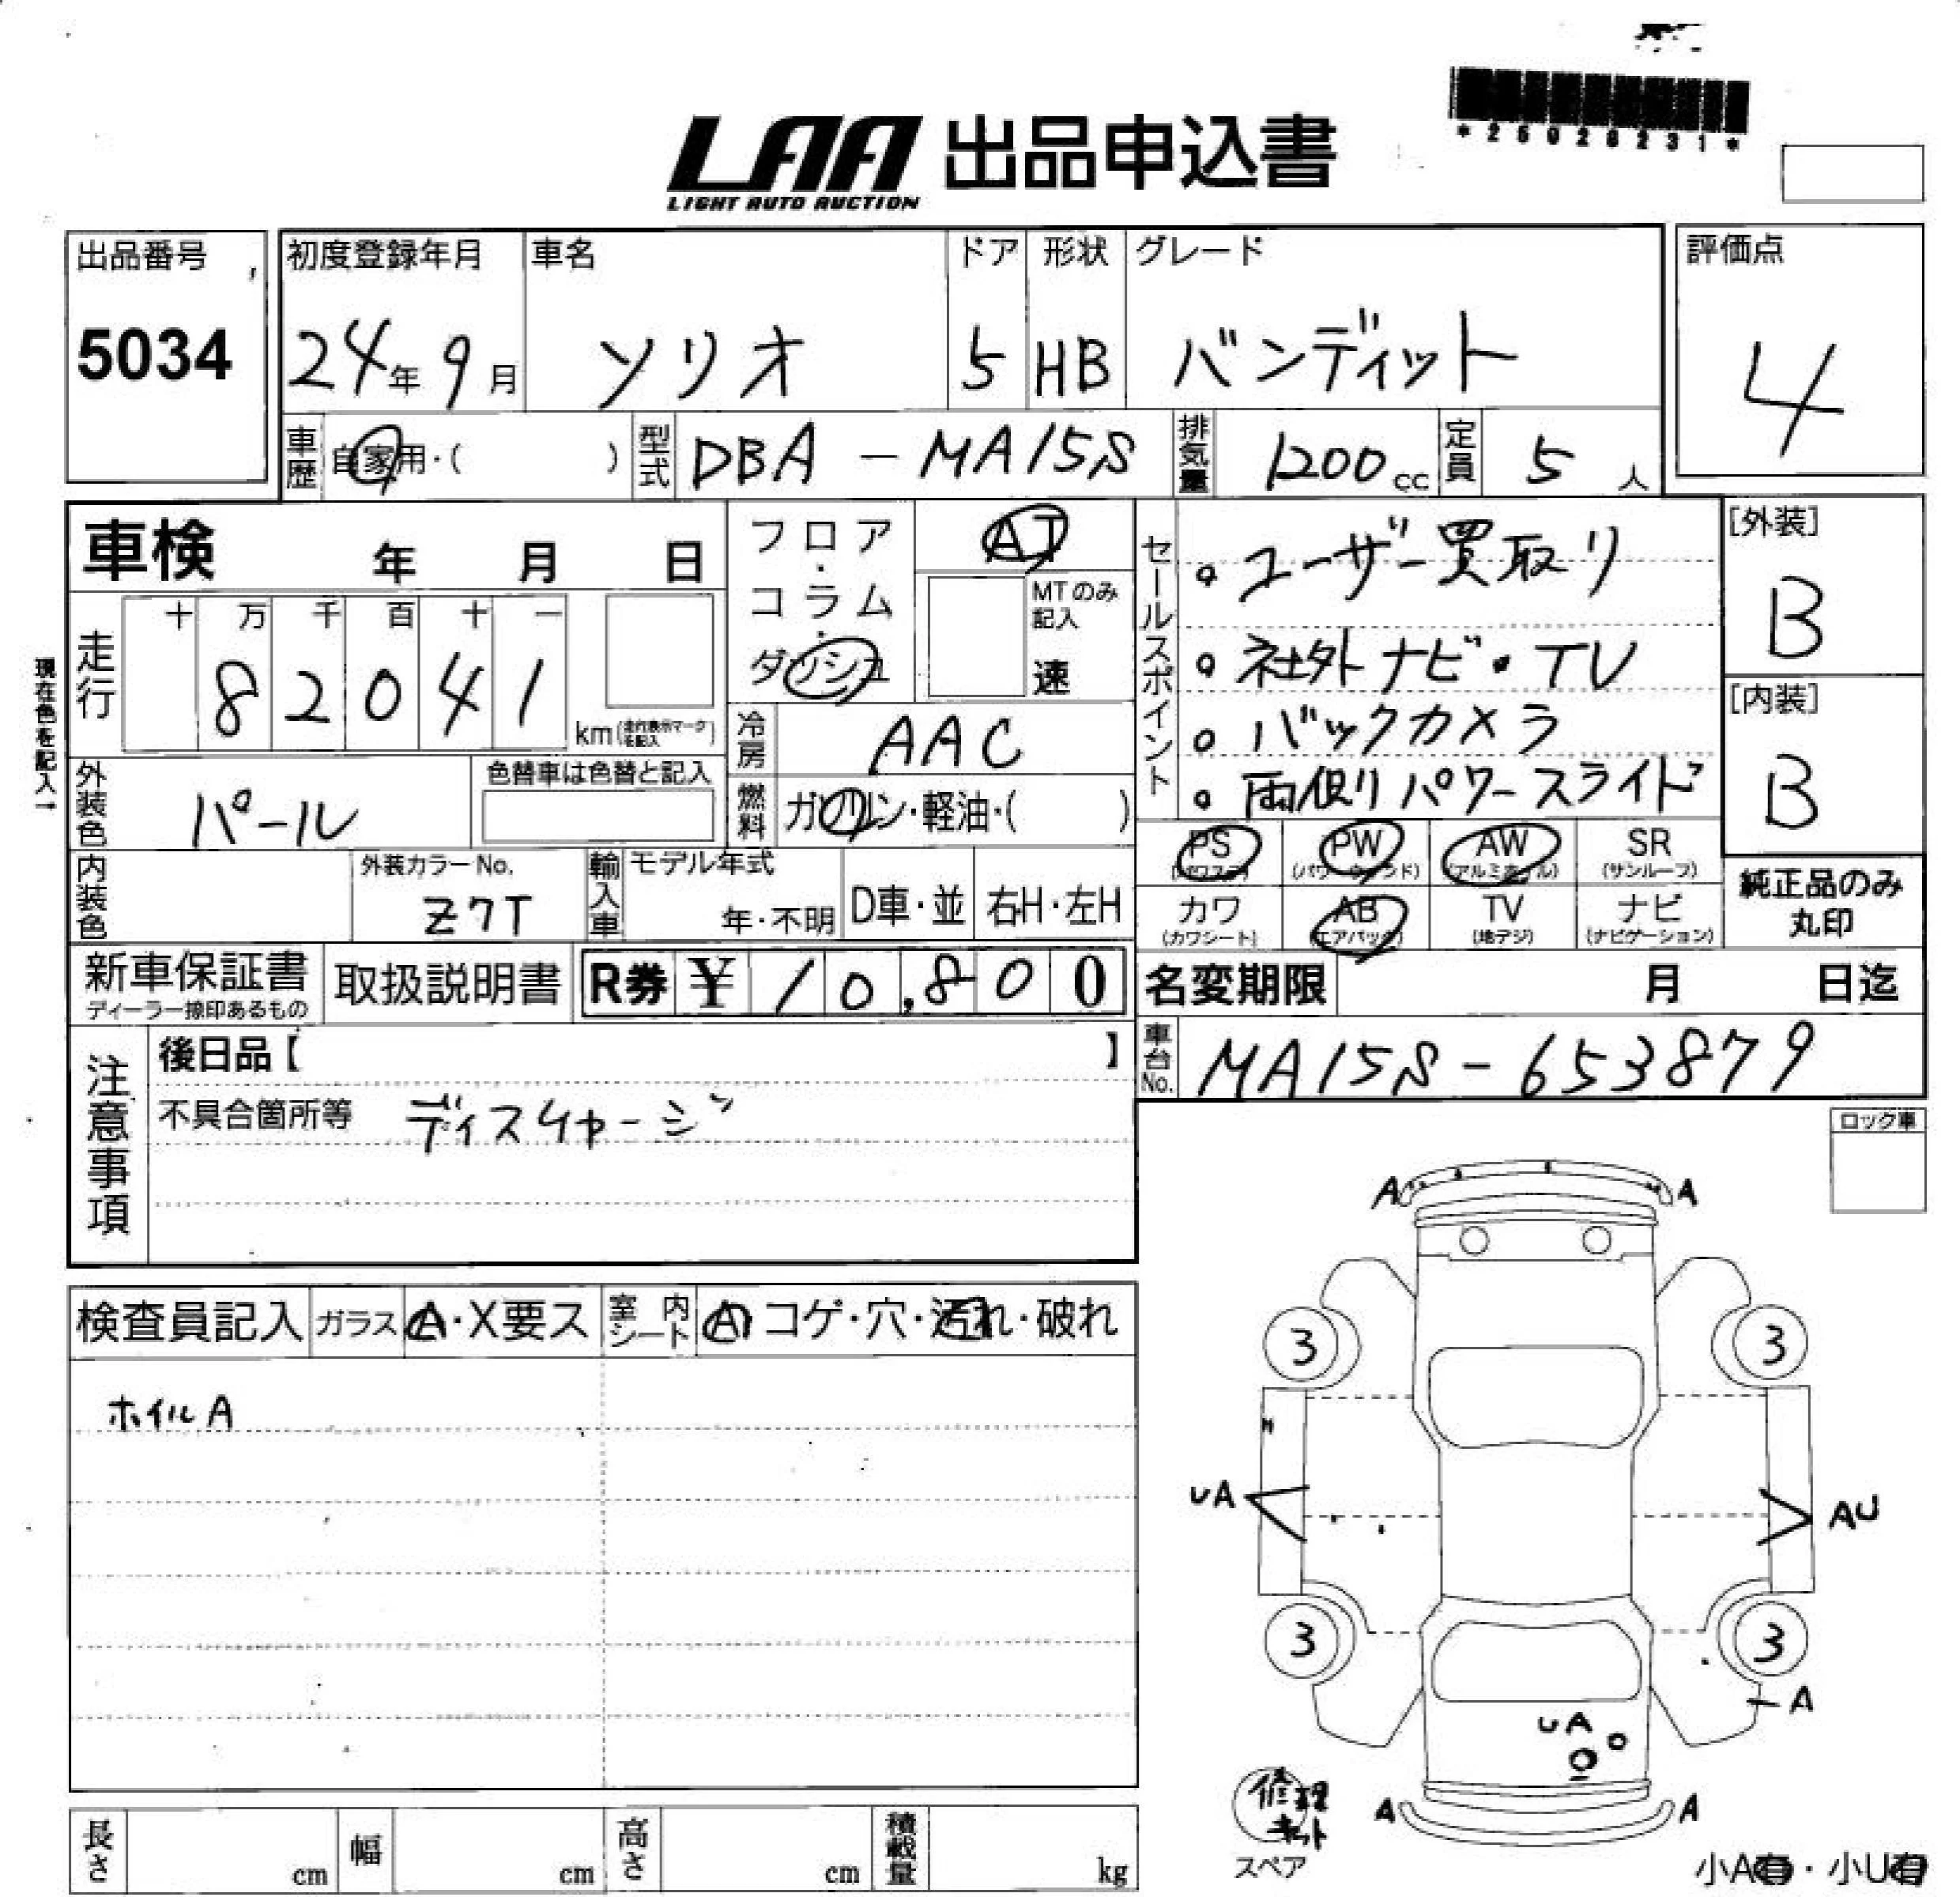 *25028231*
LAA 出品申込書
LIGHT AUTO AUCTION
出品番号
5034
初度登録年月
24年9月
車名
ソリオ
ドア
5
形状
HB
グレード
バンディット
評価点
4
車歴
自家用・( )
型式
DBA-MA15S
排気量
1200cc
定員
5人
車検 年 月 日
フロア・コラム・ダッシュ
AT
MTのみ記入
速
セールスポイント
。ユーザー買取り
。社外ナビ・TV
。バックカメラ
。両側リパワースライド
[外装]
B
[内装]
B
現在色を記入→
走行
十 万 千 百 十 一
8 2 0 4 1
km(走行表示マークを記入)
冷房
AAC
外装色
パール
色替車は色替と記入
燃料
ガソリン・軽油・( )
PS (パワステ)
PW (パワーウィンド)
AW (アルミホイル)
SR (サンルーフ)
カワ (カワシート)
AB (エアバック)
TV (地デジ)
ナビ (ナビゲーション)
純正品のみ丸印
内装色
外装カラーNo.
Z7T
輸入車
モデル年式
年・不明
D車・並
右H・左H
新車保証書
ディーラー捺印あるもの
取扱説明書
R券 ¥ 10,800
名変期限 月 日迄
車台No.
MA15S-653879
注意事項
後日品【 】
不具合箇所等 ディスチャージ
ロック車
検査員記入
ガラス A・X要ス
室内シート A コゲ・穴・汚れ・破れ
ホイルA
A A
3 3
UA AU
3 3
A
UA
A A
修理キット
スペア
小A有・小U有
長さ cm
幅 cm
高さ cm
積載量 kg